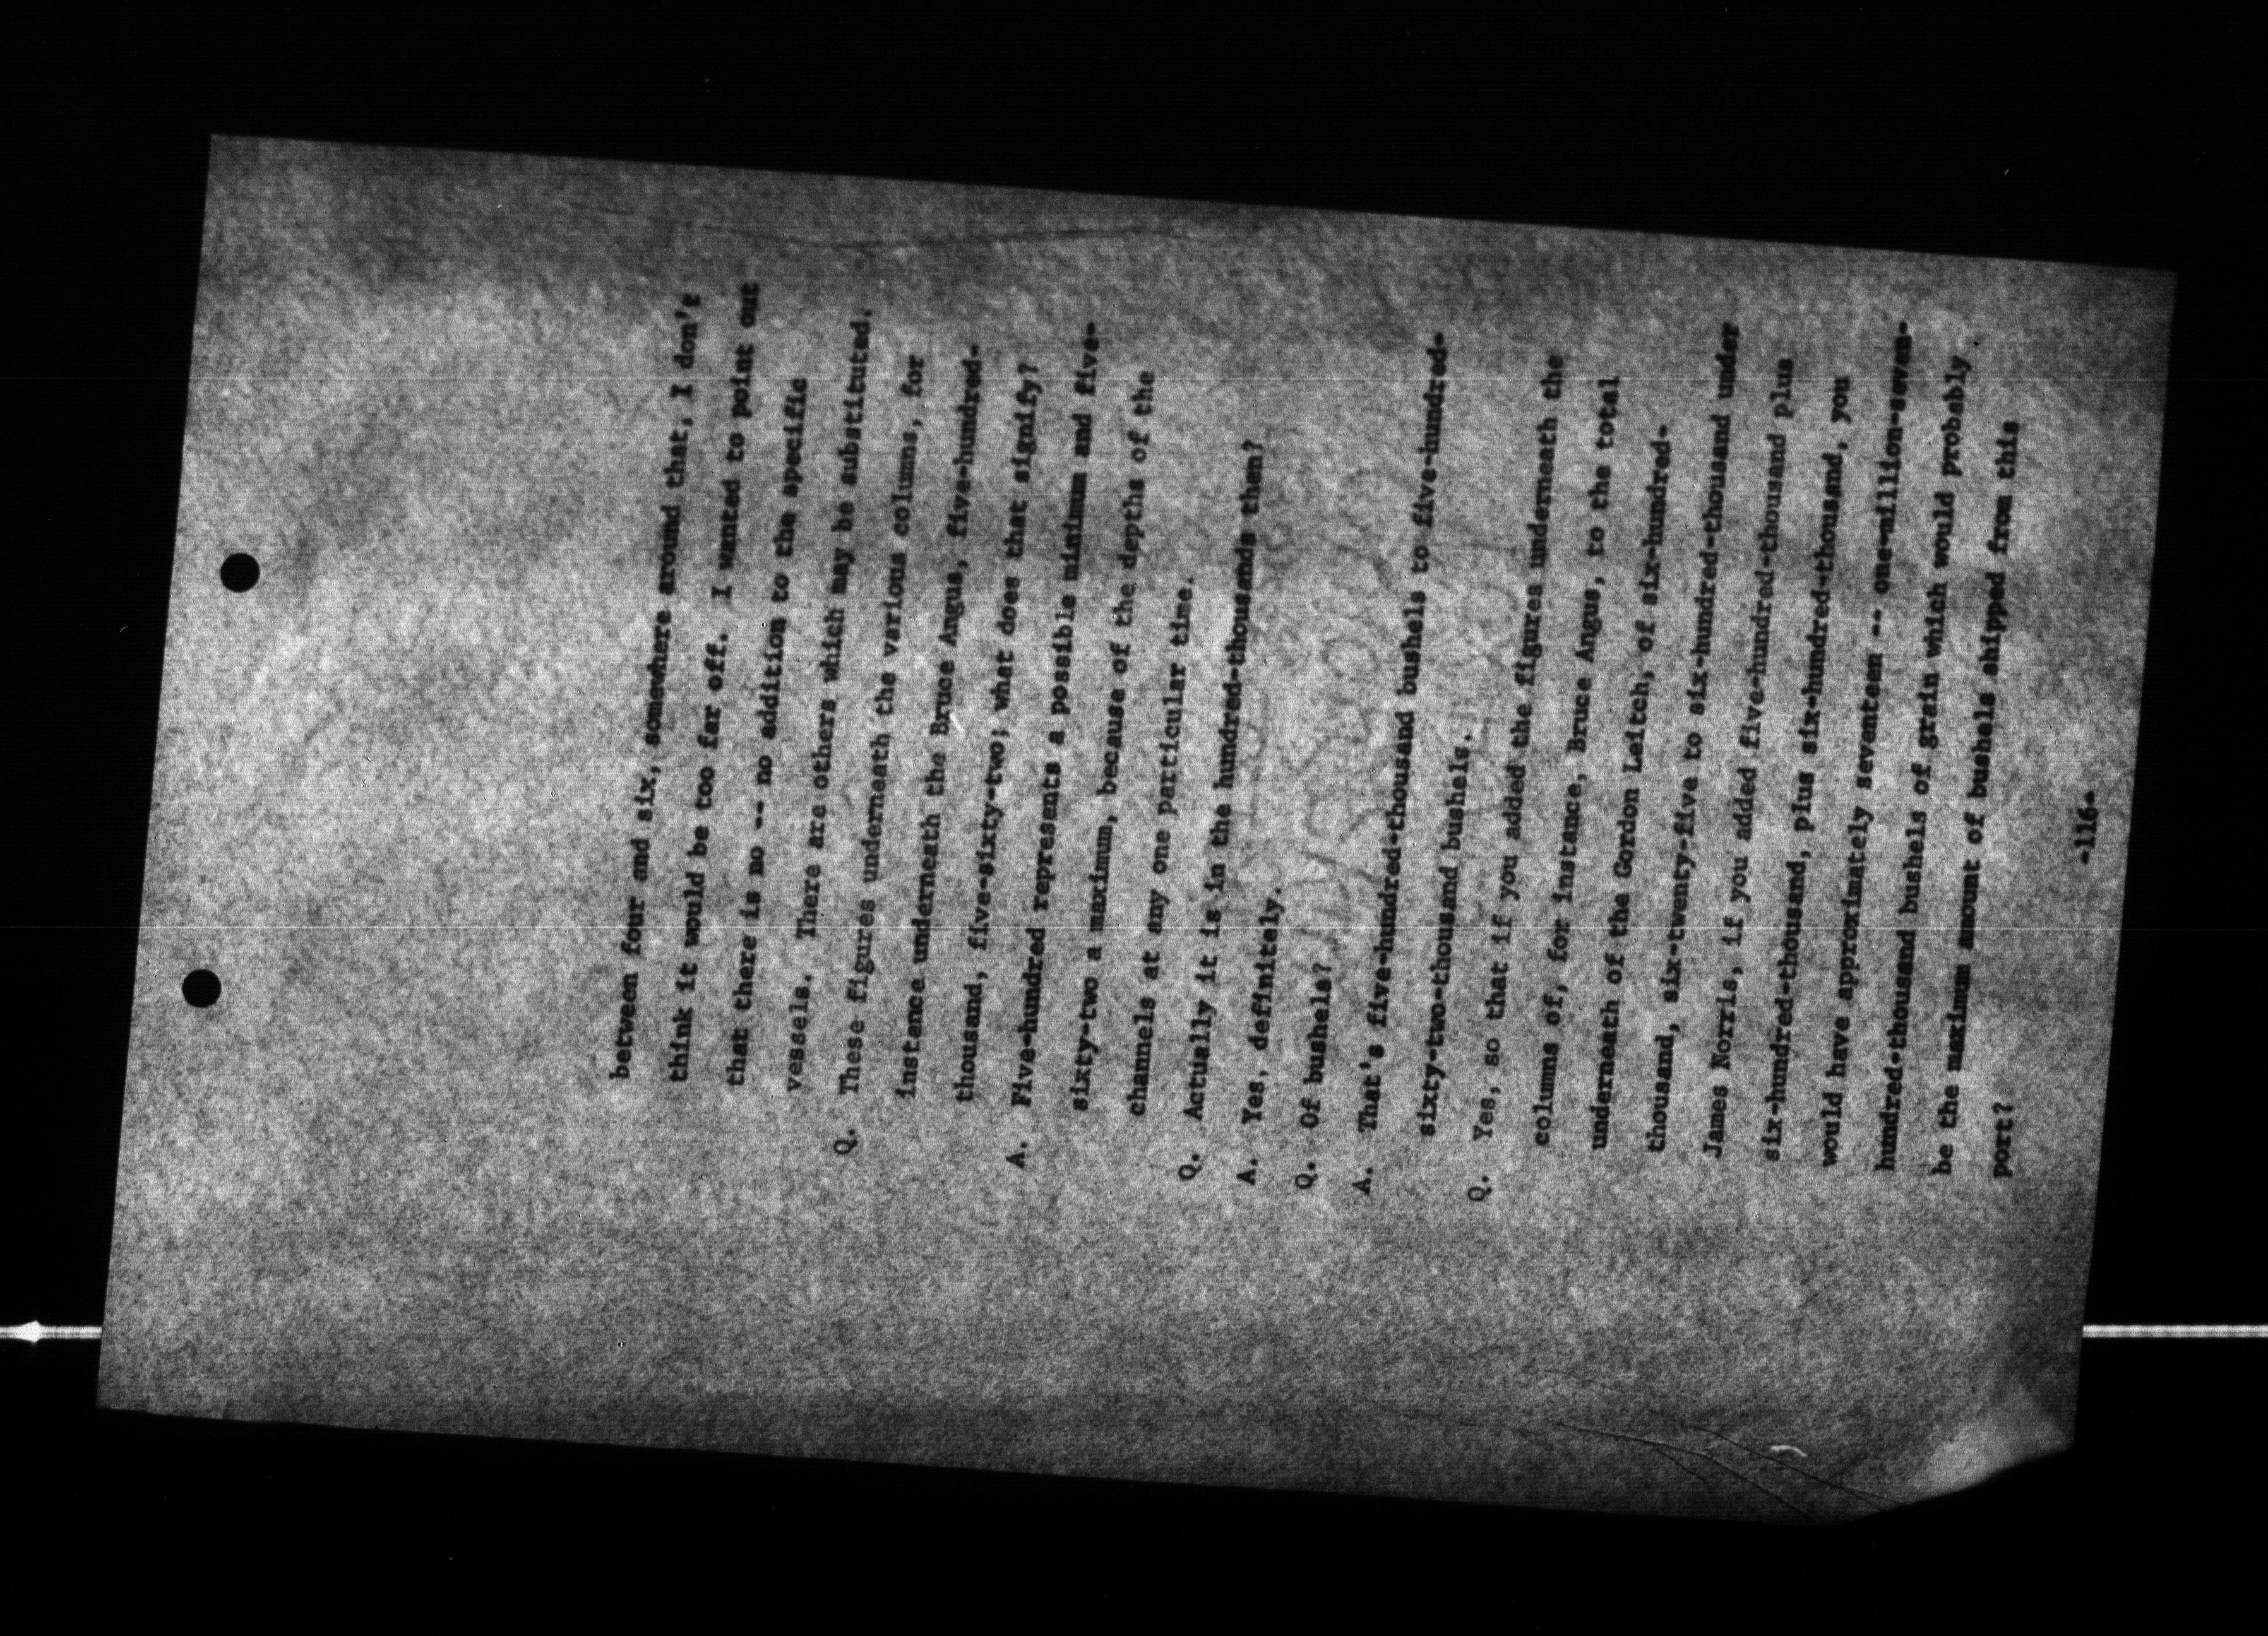 between four and six, somewhere around that, I don't
think it would be too far off. I wanted to point out
that there is no -- no addition to the specific
vessels. There are others which may be substituted.
Q. These figures underneath the various columns, for
instance underneath the Bruce Angus, five-hundred-
thousand, five-sixty-two; what does that signify?
A. Five-hundred represents a possible minimum and five-
sixty-two a maximum, because of the depths of the
channels at any one particular time.
Q. Actually it is in the hundred-thousands then?
A. Yes, definitely.
Q. Of bushels?
A. That's five-hundred-thousand bushels to five-hundred-
sixty-two-thousand bushels.
Q. Yes, so that if you added the figures underneath the
columns of, for instance, Bruce Angus, to the total
underneath of the Gordon Leitch, of six-hundred-
thousand, six-twenty-five to six-hundred-thousand under
James Norris, if you added five-hundred-thousand plus
six-hundred-thousand, plus six-hundred-thousand, you
would have approximately seventeen -- one-million-seven-
hundred-thousand bushels of grain which would probably
be the maximum amount of bushels shipped from this
port?
-116-